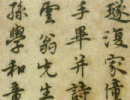 遂復家傳
手畢并詩
雲翁先生
孫學和書